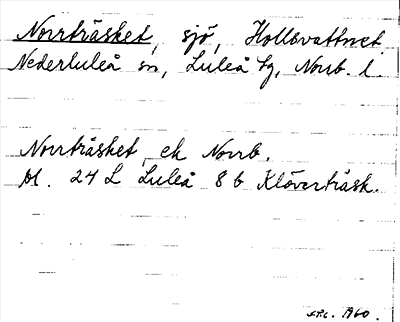 Norrträsket, sjö, Hollsvattnet
Nederluleå sn, Luleå tg, Norrb. l.
Norrträsket, ek Norrb.
bl. 24 L Luleå 8 b Klöverträsk.
1960.